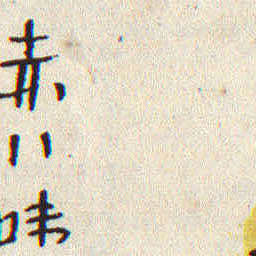 赤い味